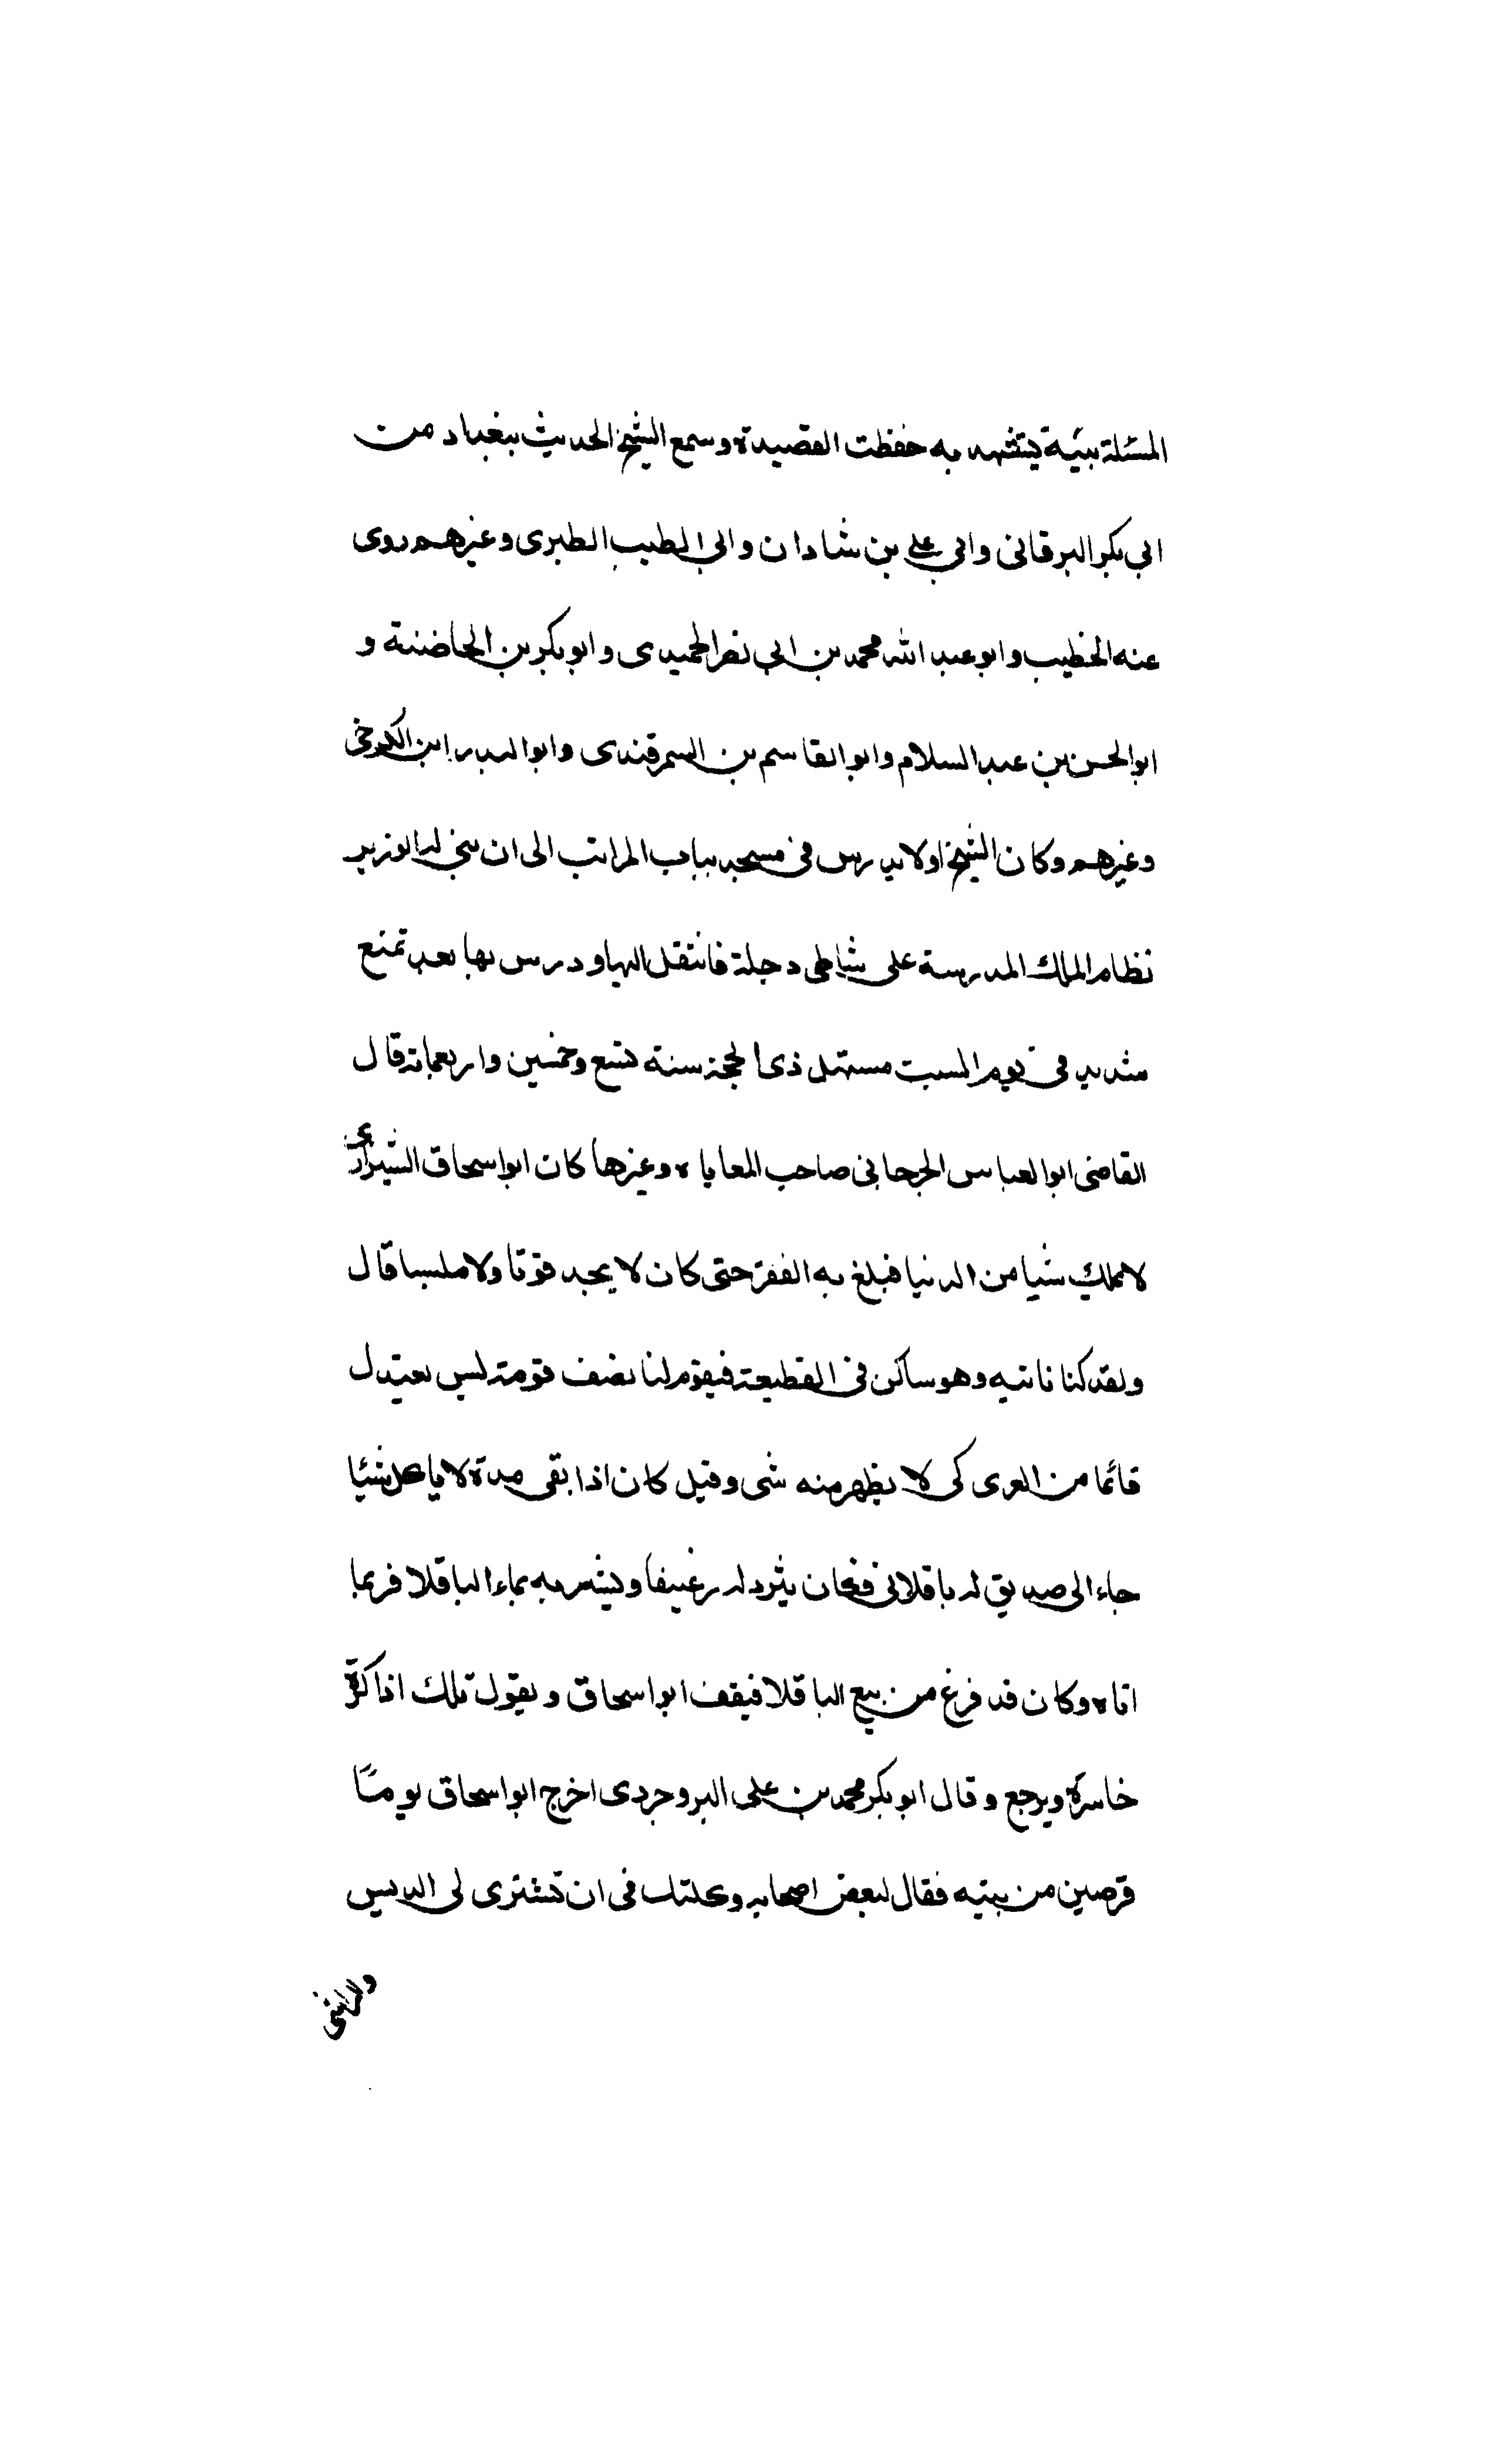 المسئلة بيتة يتشهد به حفظت القصيدة وسمع الشيخ الحديث ببغداد من
ابي بكر البرقاني وابي علي بن شادان وابي الطيب الطبرى وغيرهم روى
عنه الخطيب وابو عبد الله محمد بن ابي نصر الحميدى وابو بكر بن الحاضنة و
ابو الحسن بن عبد السلام وابو القاسم بن السمرقندى وابو البدر ابن الكروخى
وغيرهم وكان الشيخ اولا يدرس فى مسجد بباب المراتب الى ان بنى له الوزير
نظام الملك المدرسة على شاطى دجلة فانتقل اليها ودرس بها بعد تمنع
شديد فى يوم السبت مستهل ذى الحجة سنة تسع وخمسين واربعماية قال
القاضى ابو العباس الجرجانى صاحب المعاياه وغيرها كان ابو اسحاق الشيرازى
لا يملك شيا من الدنيا فبلغ به الفقر حتى كان لا يجد قوتا ولا ملبسا قال
ولقد كنا ناتيه وهو ساكن فى القطيعة فيقوم لنا نصف قومة ليس يعتدل
قائما من العرى كى لا يظهر منه شى وقيل كان اذا بقى مدة لا ياكل شيئا
جاء الى صديق له باقلانى فكان يثرد له رغيفا ويشربه بماء الباقلا فربما
اتاه وكان قد فرغ من بيع الباقلا فيقف ابو اسحاق ويقول تلك اذا كرة
خاسرة ويرجع وقال ابو بكر محمد بن على البروجردى اخرج ابو اسحاق يوما
قرصين من بيته فقال لبعض اصحابه وكلتك فى ان تشترى لى الدبس